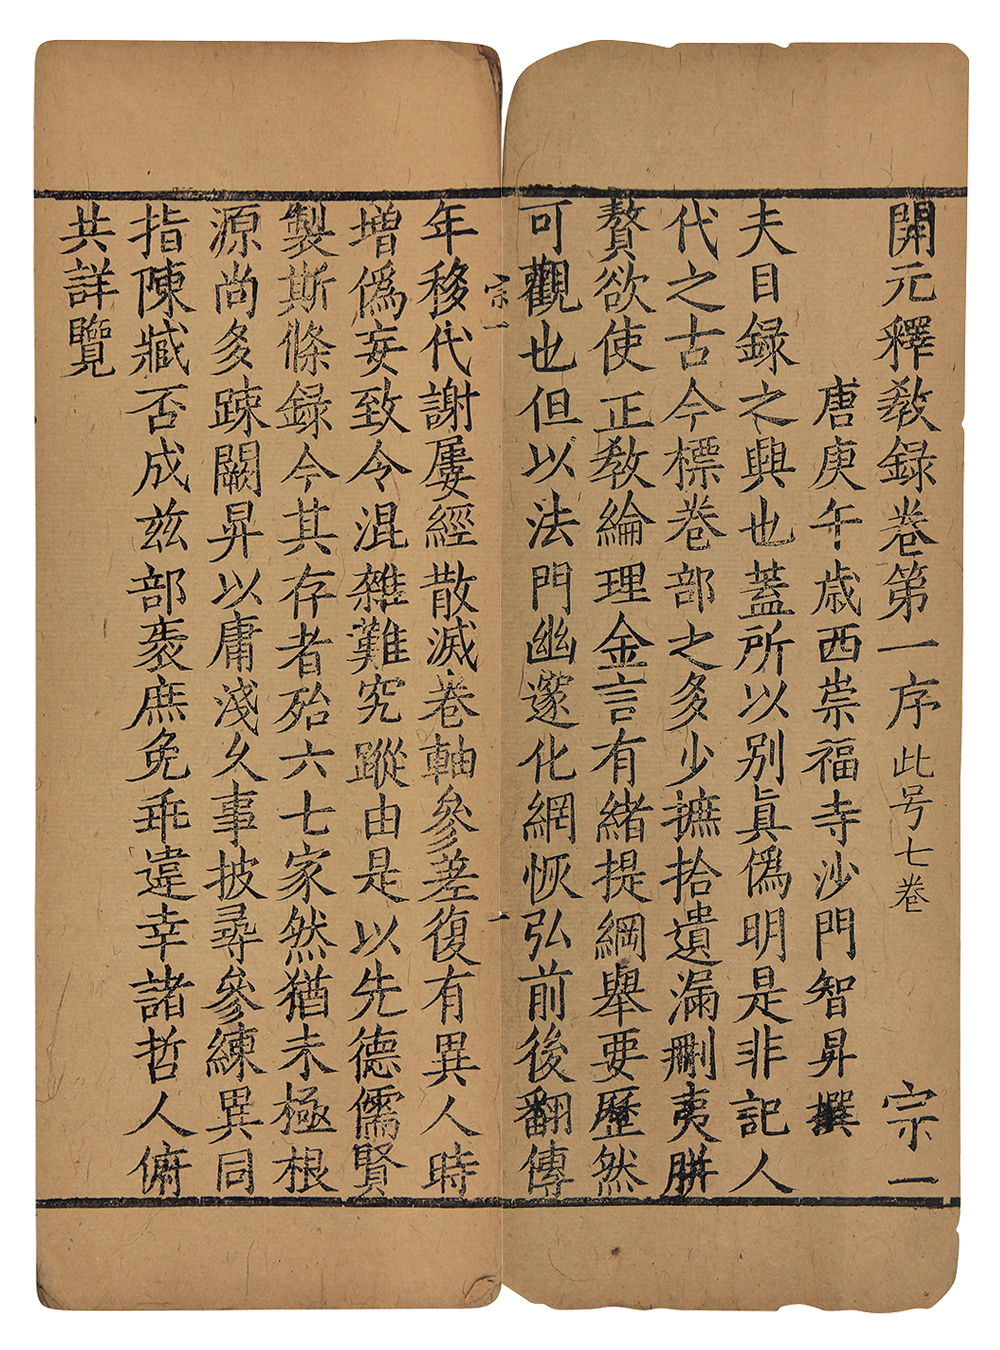 開元釋教録卷第一序 此号七卷 宗一
唐庚午歳西崇福寺沙門智昇撰
夫目録之興也蓋所以别真偽明是非記人
代之古今標卷部之多少摭拾遺漏刪夷駢
贅欲使正教綸理金言有緒提綱舉要歷然
可觀也但以法門幽邃化網恢弘前後翻傳
宗一
一
年移代謝屢經散滅卷軸參差復有異人時
増偽妄致令混雜難究蹤由是以先德儒賢
製斯條録今其存者殆六七家然猶未極根
源尚多踈闕昇以庸淺久事披尋參練異同
指陳臧否成兹部袠庶免乖違幸諸哲人俯
共詳覽